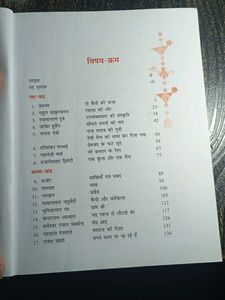 विषय-क्रम
आमुख
यह पुस्तक
गद्य-खंड
1. प्रेमचंद दो बैलों की कथा 3
2. राहुल सांकृत्यायन ल्हासा की ओर 23
3. श्यामाचरण दुबे उपभोक्तावाद की संस्कृति 34
4. जाबिर हुसैन साँवले सपनों की याद 42
5. चपला देवी
6. हरिशंकर परसाई प्रेमचंद के फटे जूते 59
7. महादेवी वर्मा मेरे बचपन के दिन 67
8. हजारीप्रसाद द्विवेदी एक कुत्ता और एक मैना 77
काव्य-खंड
9. कबीर साखियाँ एवं सबद 89
10. ललद्यद वाख 96
11. रसखान सवैये 100
12. माखनलाल चतुर्वेदी कैदी और कोकिला 105
13. सुमित्रानंदन पंत ग्राम श्री 112
14. केदारनाथ अग्रवाल चंद्र गहना से लौटती बेर 117
15. सर्वेश्वर दयाल सक्सेना मेघ आए 126
16. चंद्रकांत देवताले यमराज की दिशा 131
17. राजेश जोशी बच्चे काम पर जा रहे हैं 136